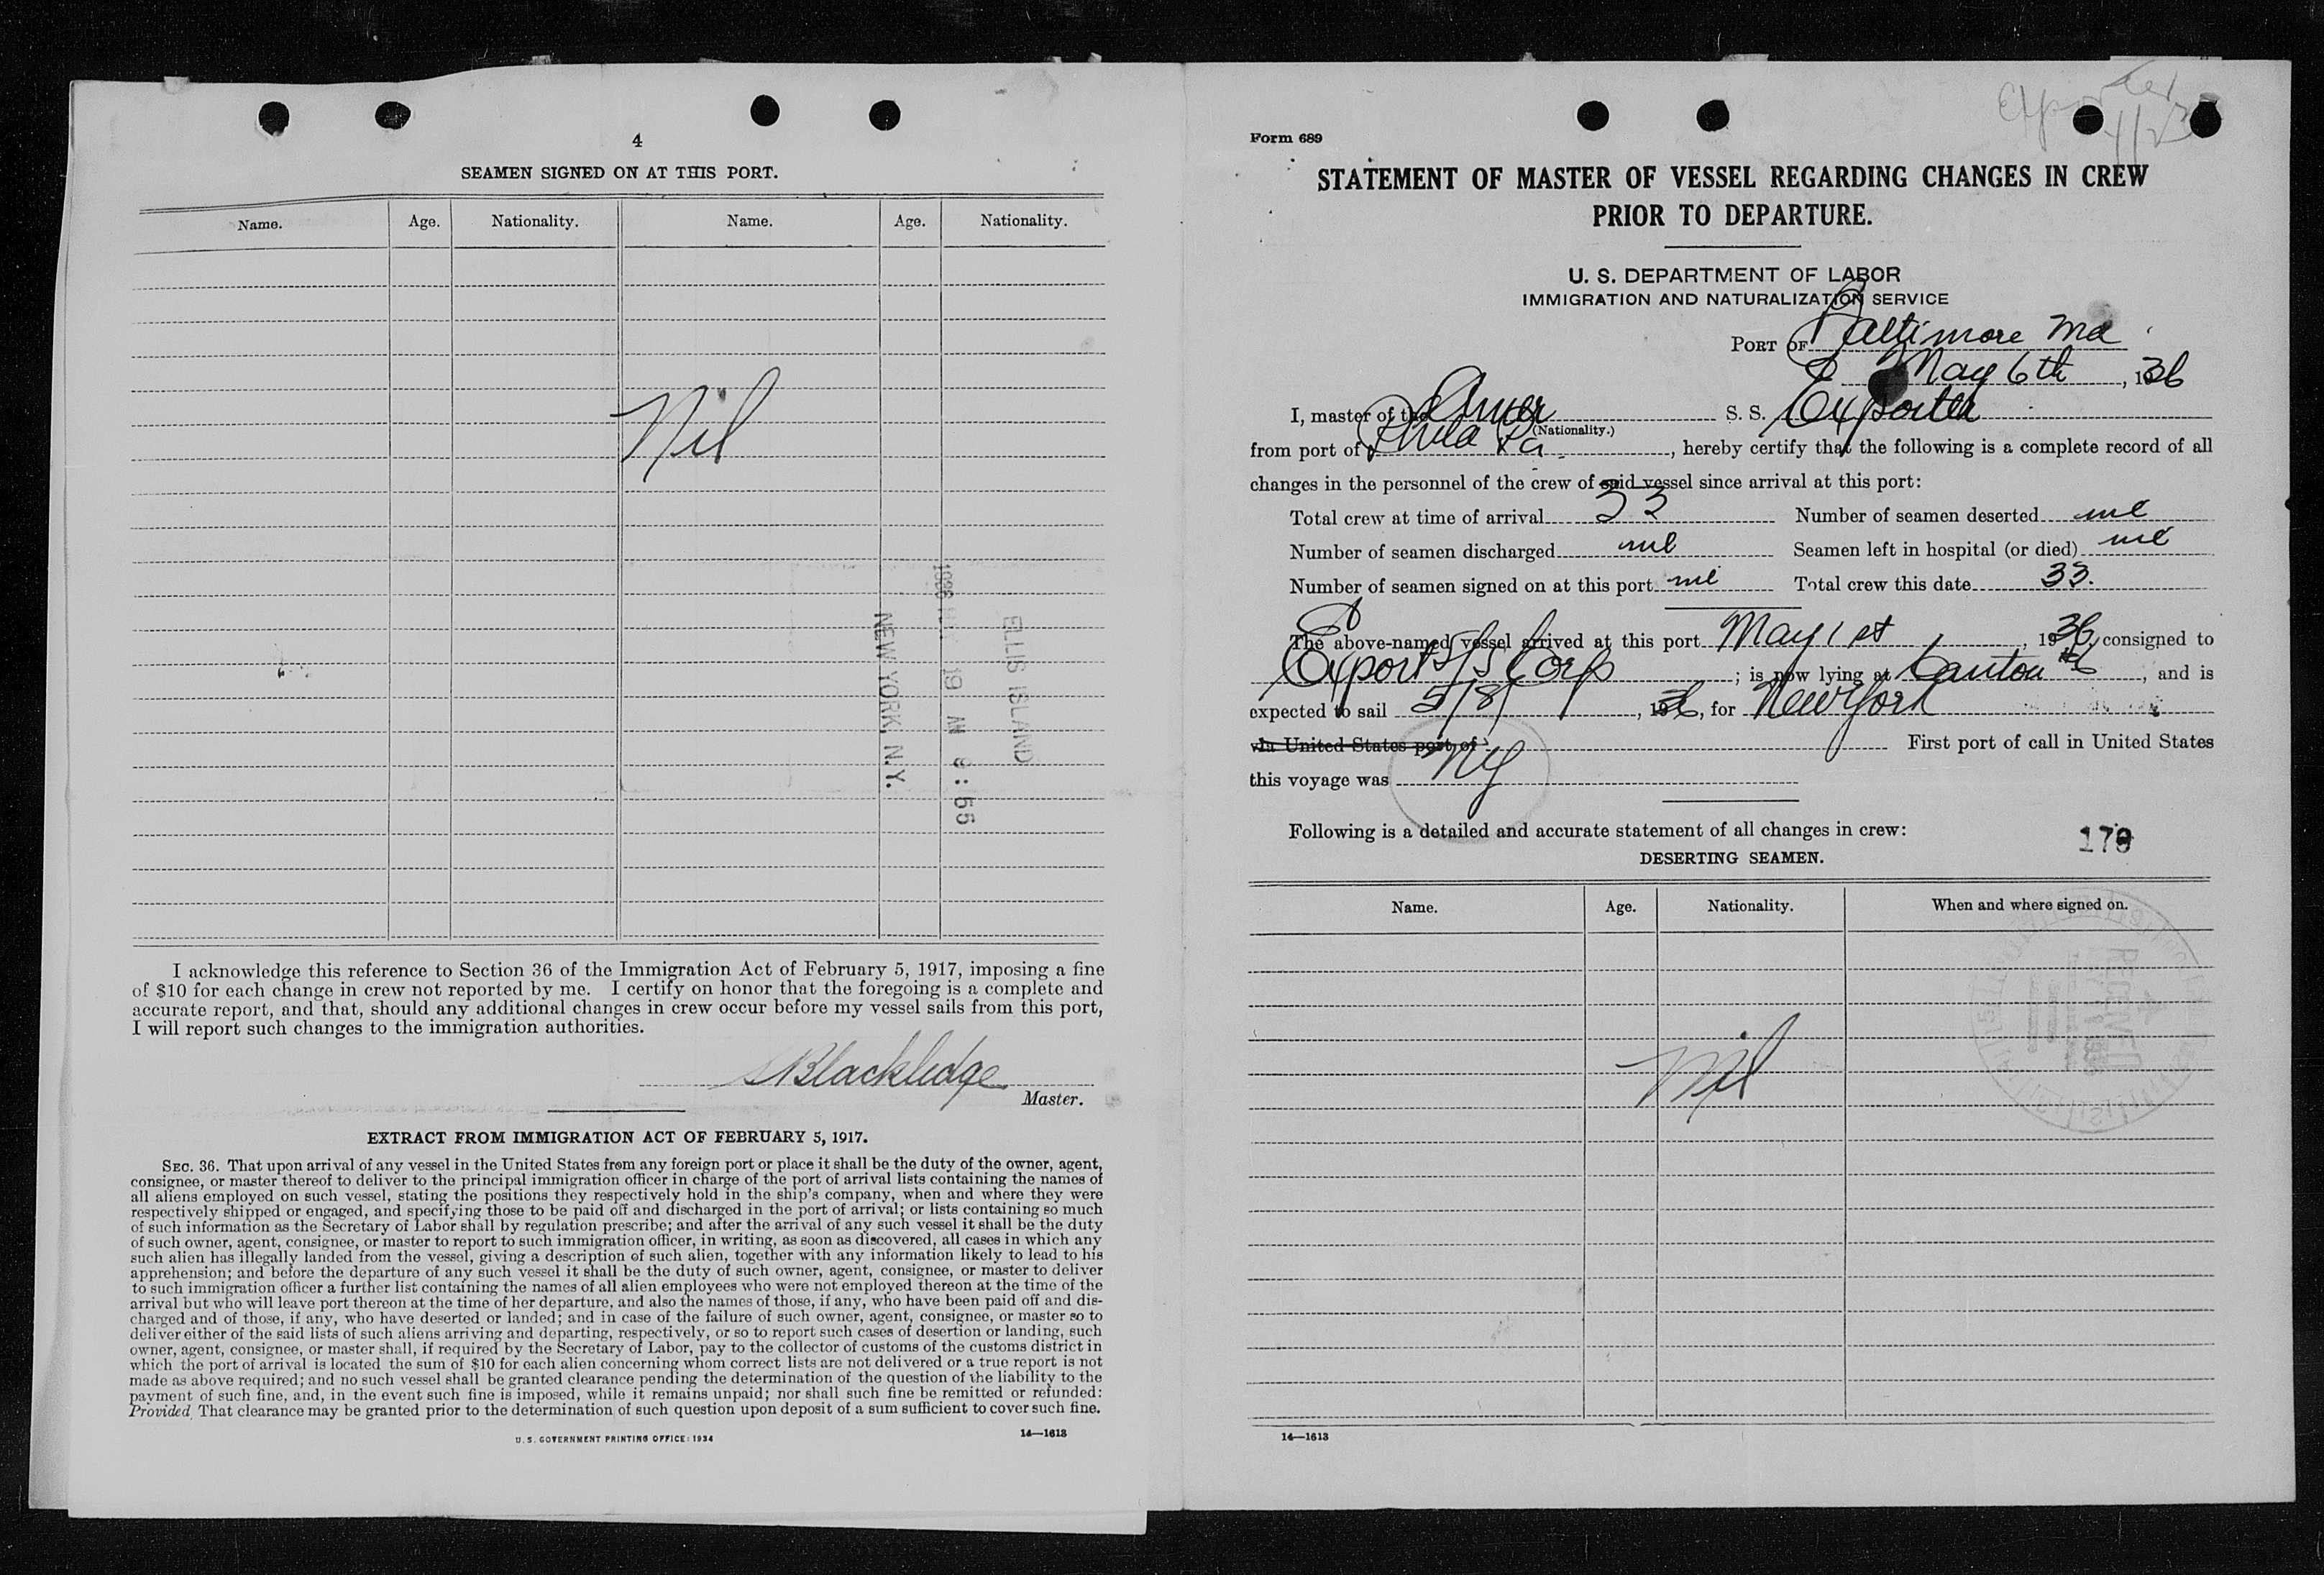 4
SEAMEN SIGNED ON AT THIS PORT.
Name. Age. Nationality. Name. Age. Nationality.
Nil
ELLIS ISLAND
19 8:55
NEW YORK, N.Y.
I acknowledge this reference to Section 36 of the Immigration Act of February 5, 1917, imposing a fine
of $10 for each change in crew not reported by me. I certify on honor that the foregoing is a complete and
accurate report, and that, should any additional changes in crew occur before my vessel sails from this port,
I will report such changes to the immigration authorities.
Blackledge
Master.
EXTRACT FROM IMMIGRATION ACT OF FEBRUARY 5, 1917.
SEC. 36. That upon arrival of any vessel in the United States from any foreign port or place it shall be the duty of the owner, agent,
consignee, or master thereof to deliver to the principal immigration officer in charge of the port of arrival lists containing the names of
all aliens employed on such vessel, stating the positions they respectively hold in the ship's company, when and where they were
respectively shipped or engaged, and specifying those to be paid off and discharged in the port of arrival; or lists containing so much
of such information as the Secretary of Labor shall by regulation prescribe; and after the arrival of any such vessel it shall be the duty
of such owner, agent, consignee, or master to report to such immigration officer, in writing, as soon as discovered, all cases in which any
such alien has illegally landed from the vessel, giving a description of such alien, together with any information likely to lead to his
apprehension; and before the departure of any such vessel it shall be the duty of such owner, agent, consignee, or master to deliver
to such immigration officer a further list containing the names of all alien employees who were not employed thereon at the time of the
arrival but who will leave port thereon at the time of her departure, and also the names of those, if any, who have been paid off and dis-
charged and of those, if any, who have deserted or landed; and in case of the failure of such owner, agent, consignee, or master so to
deliver either of the said lists of such aliens arriving and departing, respectively, or so to report such cases of desertion or landing, such
owner, agent, consignee, or master shall, if required by the Secretary of Labor, pay to the collector of customs of the customs district in
which the port of arrival is located the sum of $10 for each alien concerning whom correct lists are not delivered or a true report is not
made as above required; and no such vessel shall be granted clearance pending the determination of the question of the liability to the
payment of such fine, and, in the event such fine is imposed, while it remains unpaid; nor shall such fine be remitted or refunded:
Provided, That clearance may be granted prior to the determination of such question upon deposit of a sum sufficient to cover such fine.
U. S. GOVERNMENT PRINTING OFFICE: 1934 14—1613
Exporter
Form 689
STATEMENT OF MASTER OF VESSEL REGARDING CHANGES IN CREW
PRIOR TO DEPARTURE.
U. S. DEPARTMENT OF LABOR
IMMIGRATION AND NATURALIZATION SERVICE
PORT OF Baltimore Md
May 6th, 1936
I, master of the Amer S. S. Exporter
(Nationality.)
from port of Phila Pa., hereby certify that the following is a complete record of all
changes in the personnel of the crew of said vessel since arrival at this port:
Total crew at time of arrival 33 Number of seamen deserted nil
Number of seamen discharged nil Seamen left in hospital (or died) nil
Number of seamen signed on at this port nil Total crew this date 33.
The above-named vessel arrived at this port May 1st, 1936, consigned to
Export S/S Corp; is now lying at Canton #6, and is
expected to sail 5/8/, 1936, for New York
via United States port of First port of call in United States
this voyage was NY
Following is a detailed and accurate statement of all changes in crew:
179
DESERTING SEAMEN.
Name. Age. Nationality. When and where signed on.
Nil
RECEIVED
14—1613